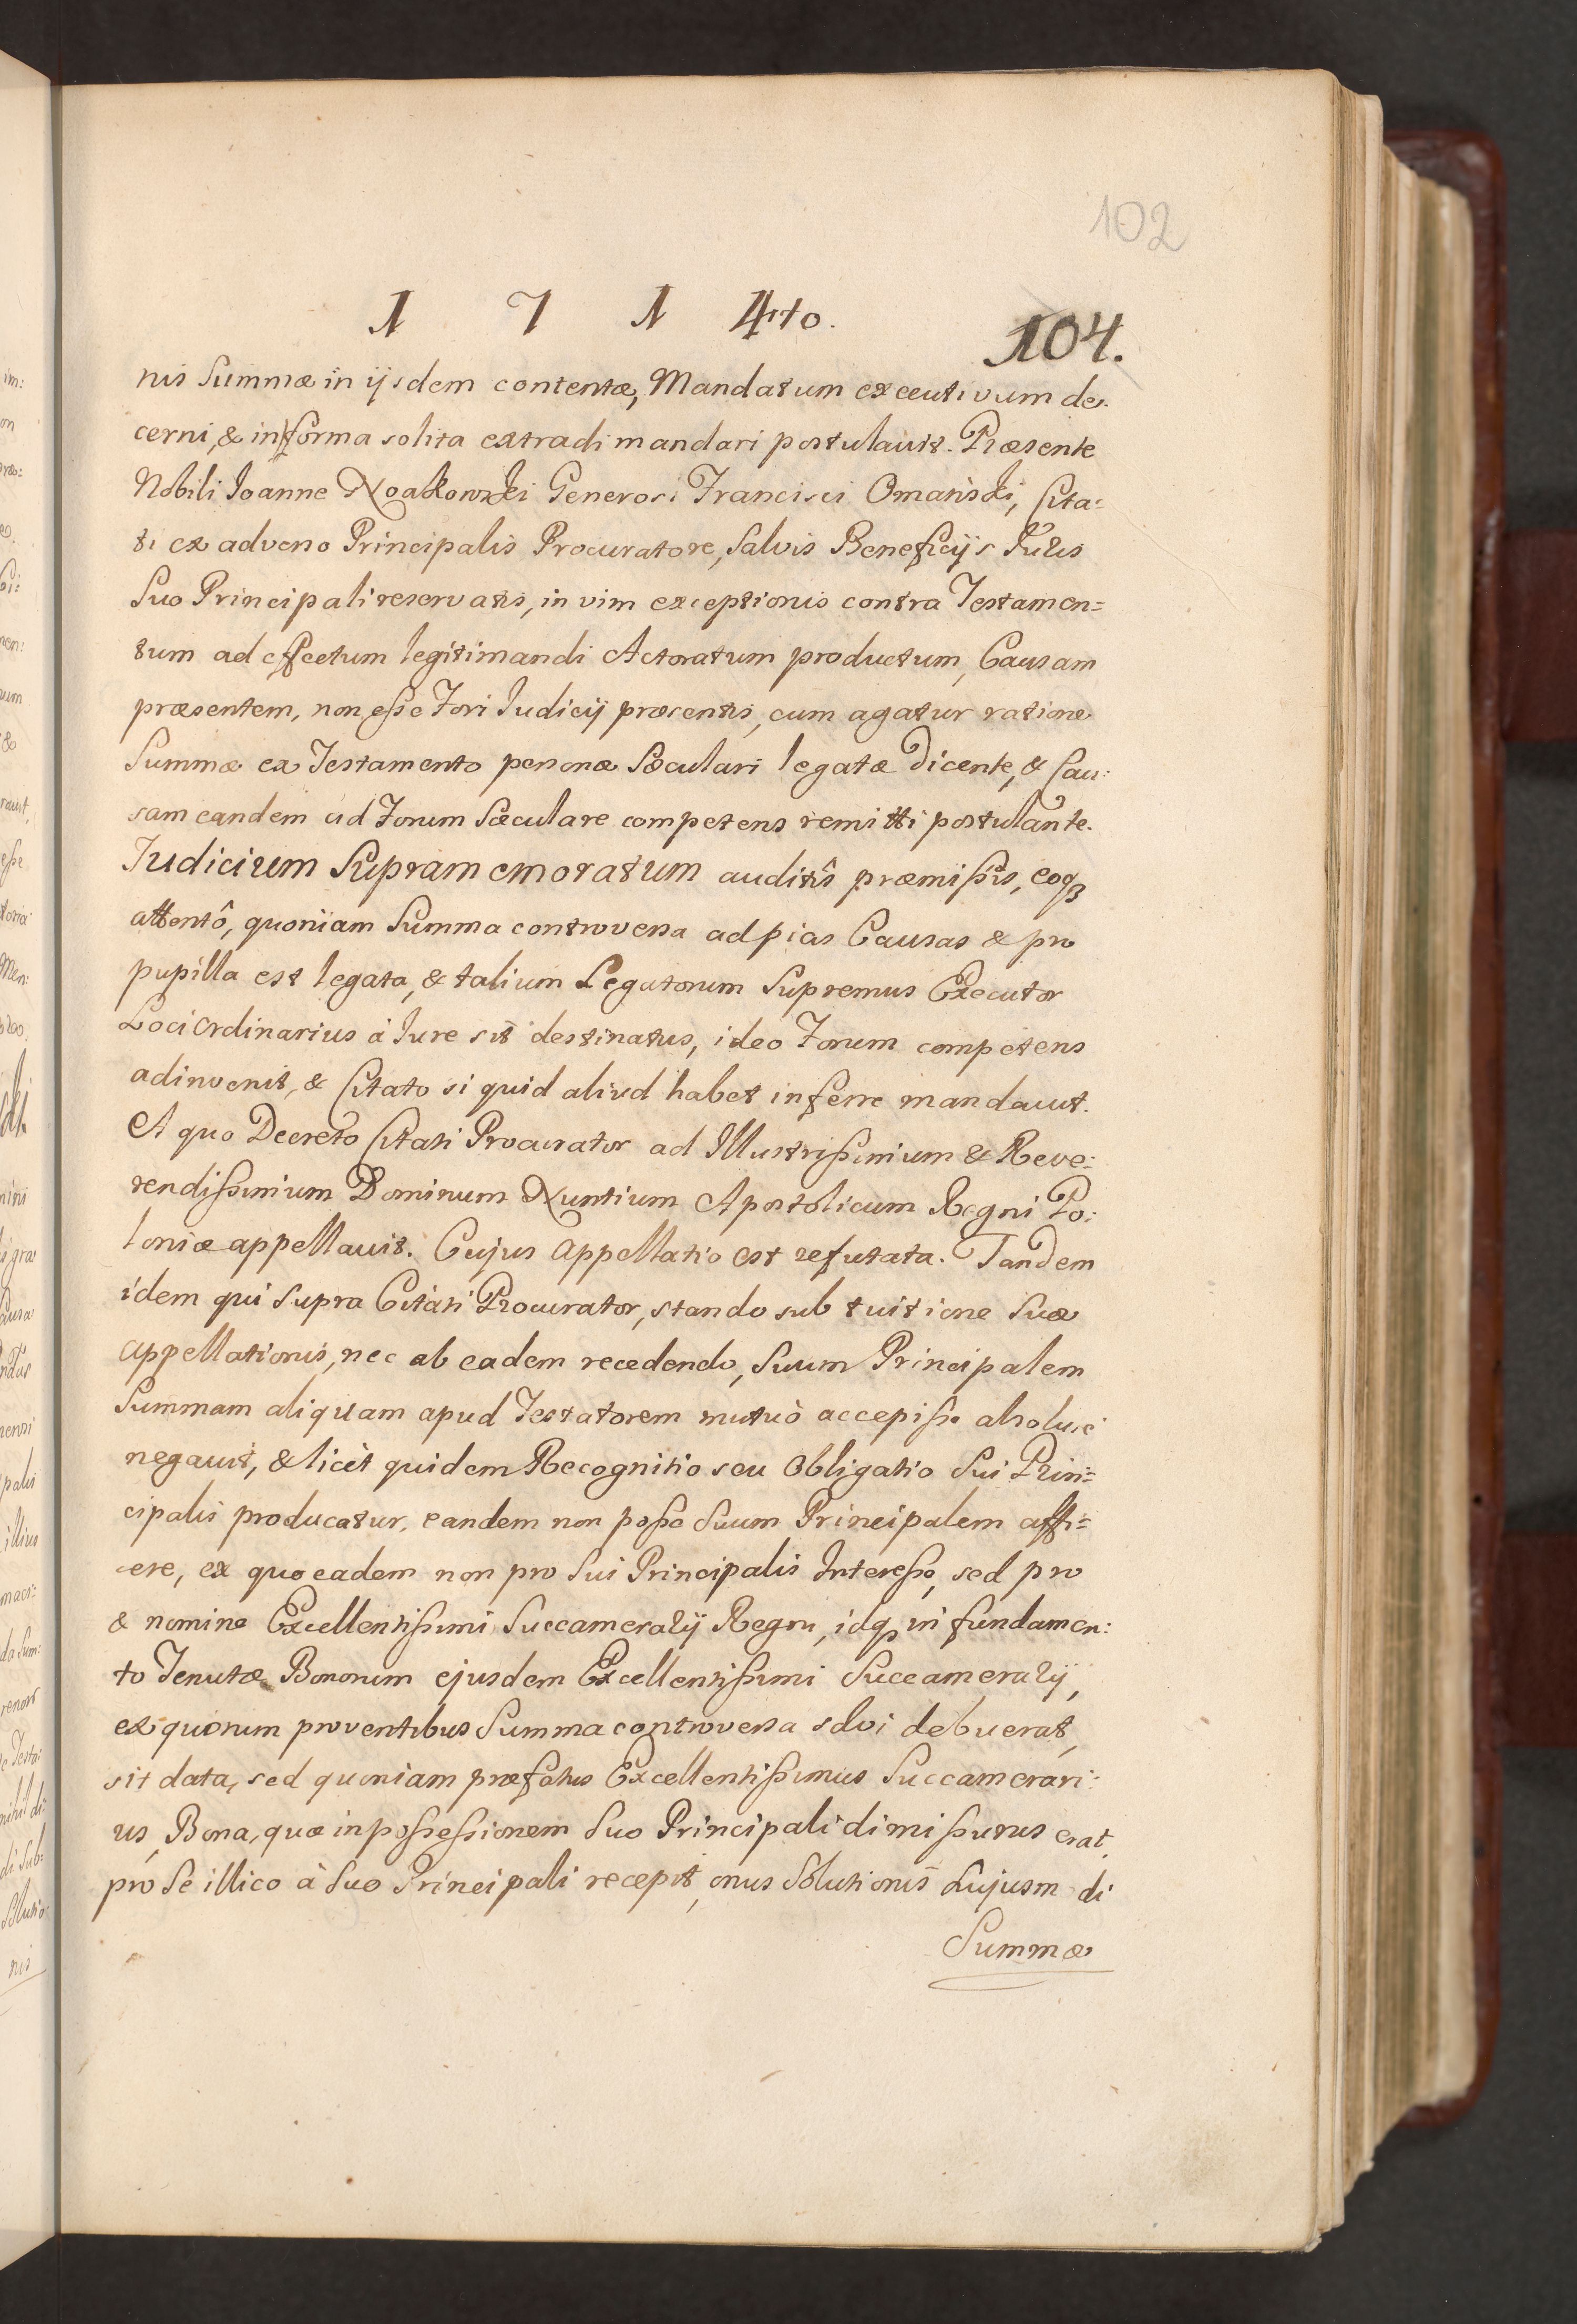 102
1 7 1 4to.
104.
nis Summæ in ijsdem contentæ, Mandatum executivum de-
cerni, & in forma solita extradi mandari postulavit. Præsente
Nobili Joanne Noakowski Generosi Francisci Omański, Cita=
ti ex adverso Principalis Procuratore, Salvis Beneficijs Juris
Suo Principali reservatis, in vim exceptionis contra Testamen=
tum ad effectum legitimandi Actoratum productum, Causam
præsentem, non eſse Fori Judicij præsentis, cum agatur ratione
Summæ ex Testamento personæ Sæculari legatæ dicente, & Cau:
sam eandem ad Forum Sæculare competens remitti postulante.
Judicium Supramemoratum auditîs præmiſsis, eoq3
attentô, quoniam Summa controversa ad pias Causas & pro
pupilla est legata, & talium Legatorum Supremus Executor
Loci Ordinarius à Jure sit destinatus, ideo Forum competens
adinvenit, & Citato si quid aliud habet inferre mandavit.
A quo Decreto Citati Procurator ad Illustriſsimum & Reve:
rendiſsimum Dominum Nuntium Apostolicum Regni Po:
loniæ appellavit. Cujus Appellatio est refutata. Tandem
idem qui supra Citati Procurator, stando sub tuitione Suæ
appellationis, nec ab eadem recedendo, Suum Principalem
Summam aliquam apud Testatorem mutuò accepiſse absolutè
negavit, & licèt quidem Recognitio seu Obligatio Sui Prin=
cipalis producatur, eandem non poſse Suum Principalem affi=
cere, ex quo eadem non pro Sui Principalis Intereſse, sed pro
& nomine Excellentiſsimi Succamerarij Regni, idq3 in fundamen:
to Tenutæ Bonorum ejusdem Excellentiſsimi Succamerarij,
ex quorum proventibus Summa controversa solvi debuerat,
sit data, sed quoniam præfatus Excellentiſsimus Succamerari:
us, Bona, quæ in poſseſsionem Suo Principali dimiſsurus erat,
pro Se illico à Suo Principali recepit, onus Solutionis hujusmodi
Summæ